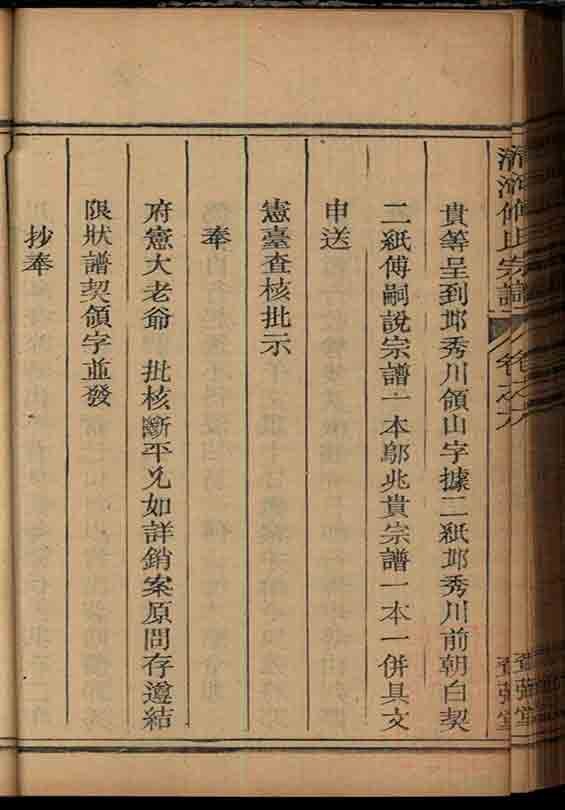 清河傅氏宗譜
卷之六
貴等呈到邱秀川領山字據二紙邱秀川前朝白契
二紙傅嗣說宗譜一本鄔兆貴宗譜一本一併具文
申送
憲臺查核批示
奉
府憲大老爺 批核斷平允如詳銷案原問存遵結
限狀譜契領字並發
抄奉